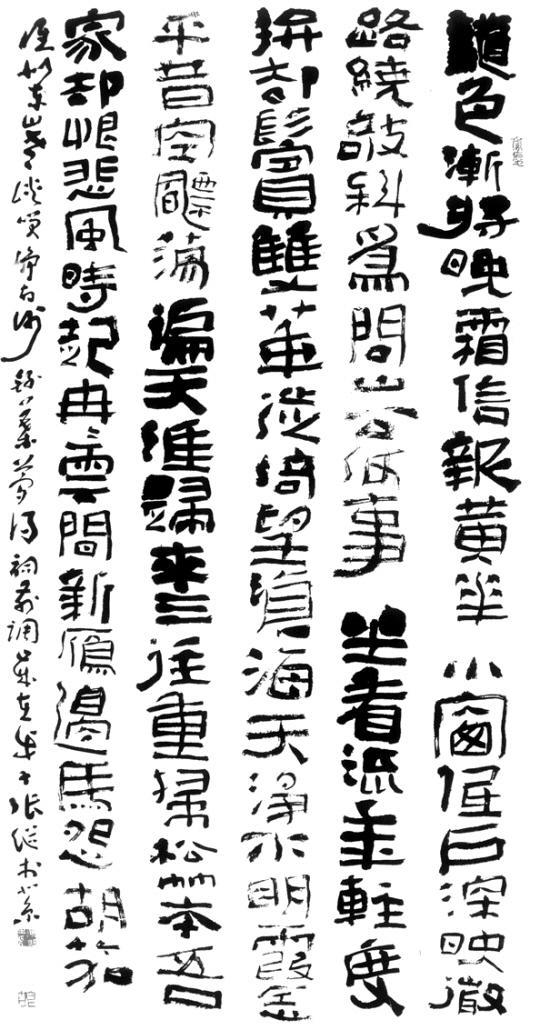 龝色漸將晚霜信報黃華小窗低戶深映微
路繞敧斜為問山公何事坐看流年輕度
拚却鬢雙華徙倚望滄海天淨水明霞念
平昔空飄蕩遍天涯歸來三徑重掃松竹本吾
家却恨悲風時起冉冉雲間新鴈邊馬怨胡笳
誰似東山老談笑淨胡沙錄葉夢得詞調歲在張繼書於京